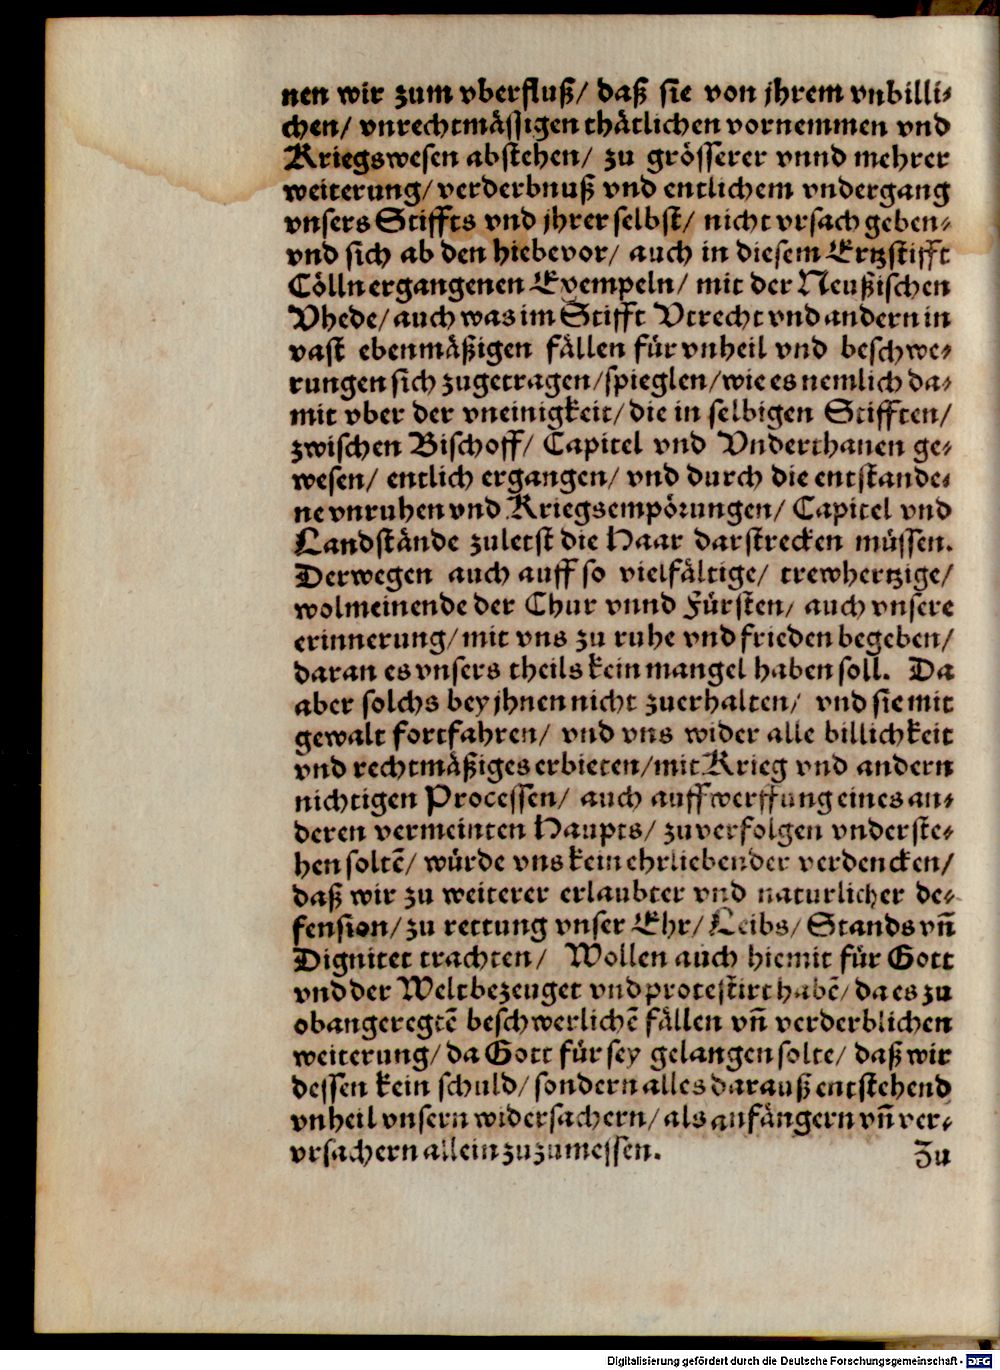 nen wir zum vberfluß/ daß sie von jhrem vnbilli-
chen/ vnrechtmässigen thätlichen vornemmen vnd
Kriegswesen abstehen/ zu grösserer vnnd mehrer
weiterung/ verderbnuß vnd entlichem vndergang
vnsers Stiffts vnd jhrer selbst/ nicht vrsach geben-
vnd sich ab den hiebevor/ auch in diesem Ertzstifft
Cölln ergangenen Exempeln/ mit der Neußischen
Vhede/ auch was im Stifft Vtrecht vnd andern in
vast ebenmäßigen fällen für vnheil vnd beschwe-
rungen sich zugetragen/ spieglen/ wie es nemlich da-
mit vber der vneinigkeit/ die in selbigen Stifften/
zwischen Bischoff/ Capitel vnd Vnderthanen ge-
wesen/ entlich ergangen/ vnd durch die entstande-
ne vnruhen vnd Kriegsempörungen/ Capitel vnd
Landstände zuletst die Haar darstrecken müssen.
Derwegen auch auff so vielfältige/ trewhertzige/
wolmeinende der Chur vnnd Fürsten/ auch vnsere
erinnerung/ mit vns zu ruhe vnd frieden begeben/
daran es vnsers theils kein mangel haben soll. Da
aber solchs bey jhnen nicht zuerhalten/ vnd sie mit
gewalt fortfahren/ vnd vns wider alle billichkeit
vnd rechtmäßiges erbieten/ mit Krieg vnd andern
nichtigen Processen/ auch auffwerffung eines an-
deren vermeinten Haupts/ zuverfolgen vnderste-
hen soltē/ würde vns kein ehrliebender verdencken/
daß wir zu weiterer erlaubter vnd naturlicher de-
fension/ zu rettung vnser Ehr/ Leibs/ Stands vñ
Dignitet trachten/ Wollen auch hiemit für Gott
vnd der Welt bezeuget vnd protestirt habē/ da es zu
obangeregtē beschwerlichē fällen vñ verderblichen
weiterung/ da Gott für sey gelangen solte/ daß wir
dessen kein schuld/ sondern alles darauß entstehend
vnheil vnsern widersachern/ als anfängern vñ ver-
vrsachern allein zuzumessen.
Zu
Digitalisierung gefördert durch die Deutsche Forschungsgemeinschaft - DFG